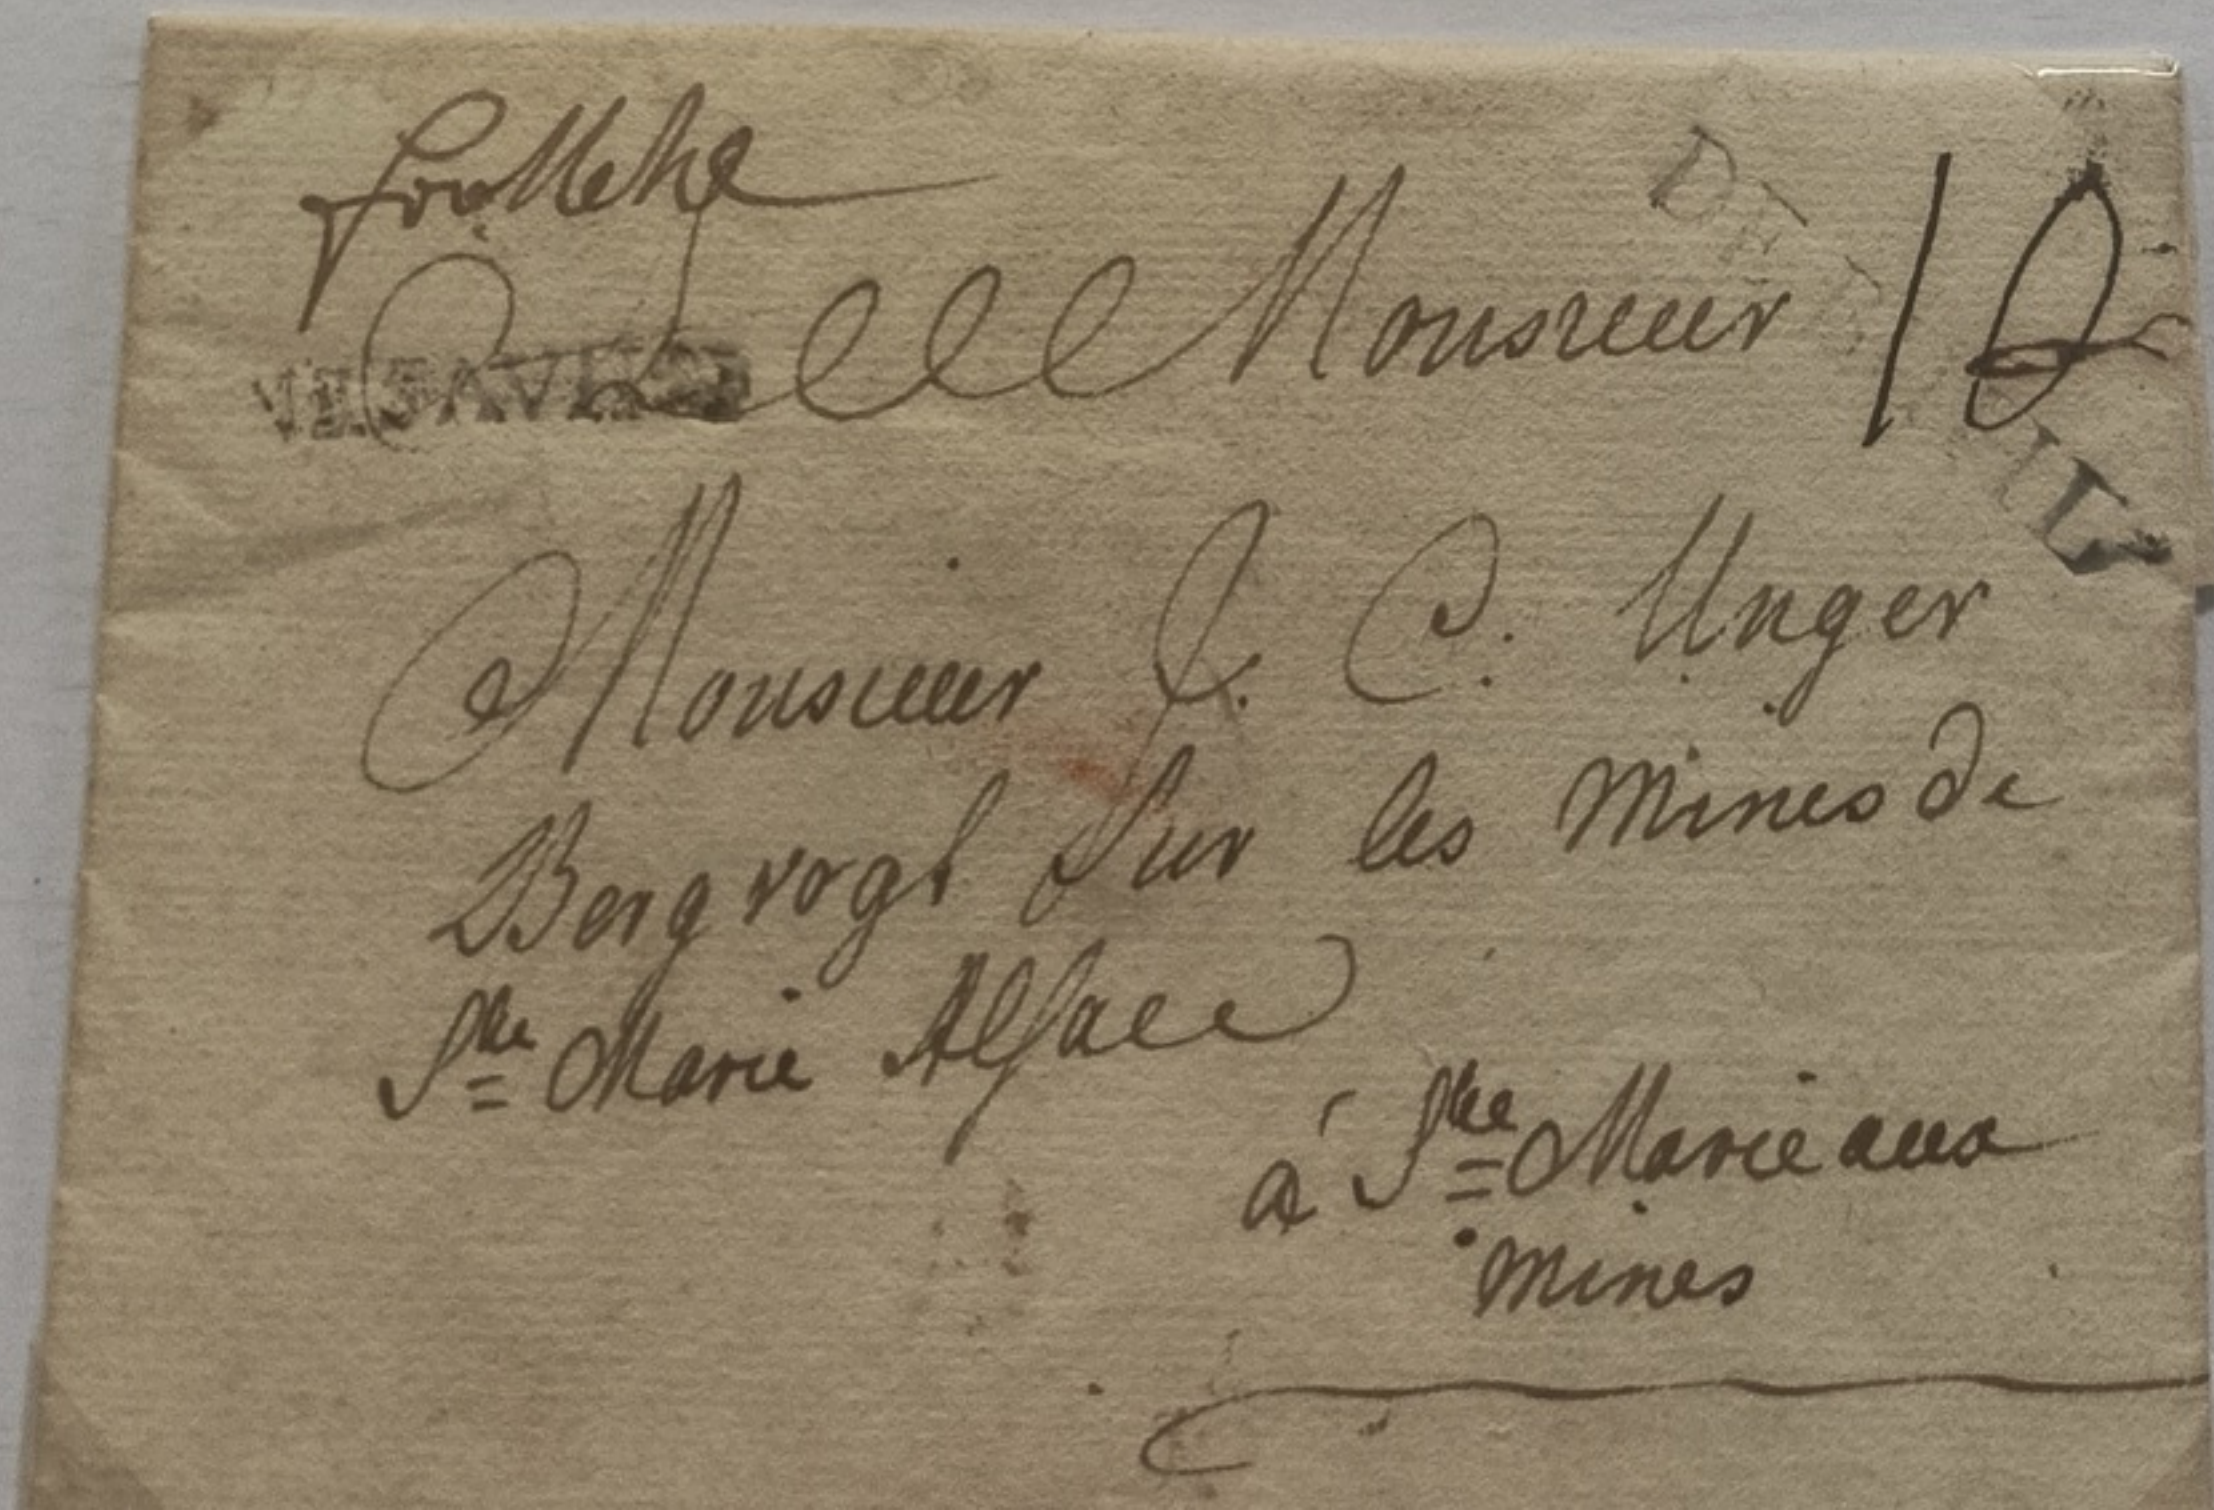 Monsieur
Monsieur J. C. Unger
Bergvogt sur les mines de
Ste Marie Alsace
à Ste Marie aux
mines